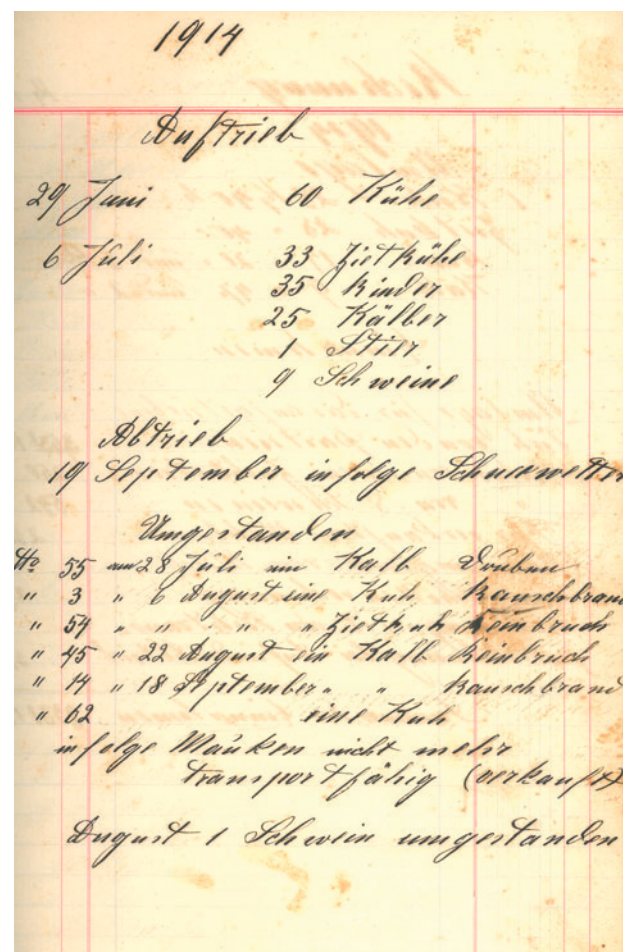 1914
Auftrieb
29 Juni 60 Kühe
6 Juli 33 Zietkühe
35 Rinder
25 Kälber
1 Stier
9 Schweine
Abtrieb
19 September infolge Schneewetter
Umgestanden
No 55 am 28 Juli ein Kalb Drüben
" 3 " 6 August eine Kuh Rauschbrand
" 54 " " " " Zietkuh Beinbruch
" 45 " 22 August ein Kalb Beinbruch
" 14 " 18 September " " Rauschbrand
" 62 eine Kuh
infolge Mauken nicht mehr
transportfähig (verkauft)
August 1 Schwein umgestanden